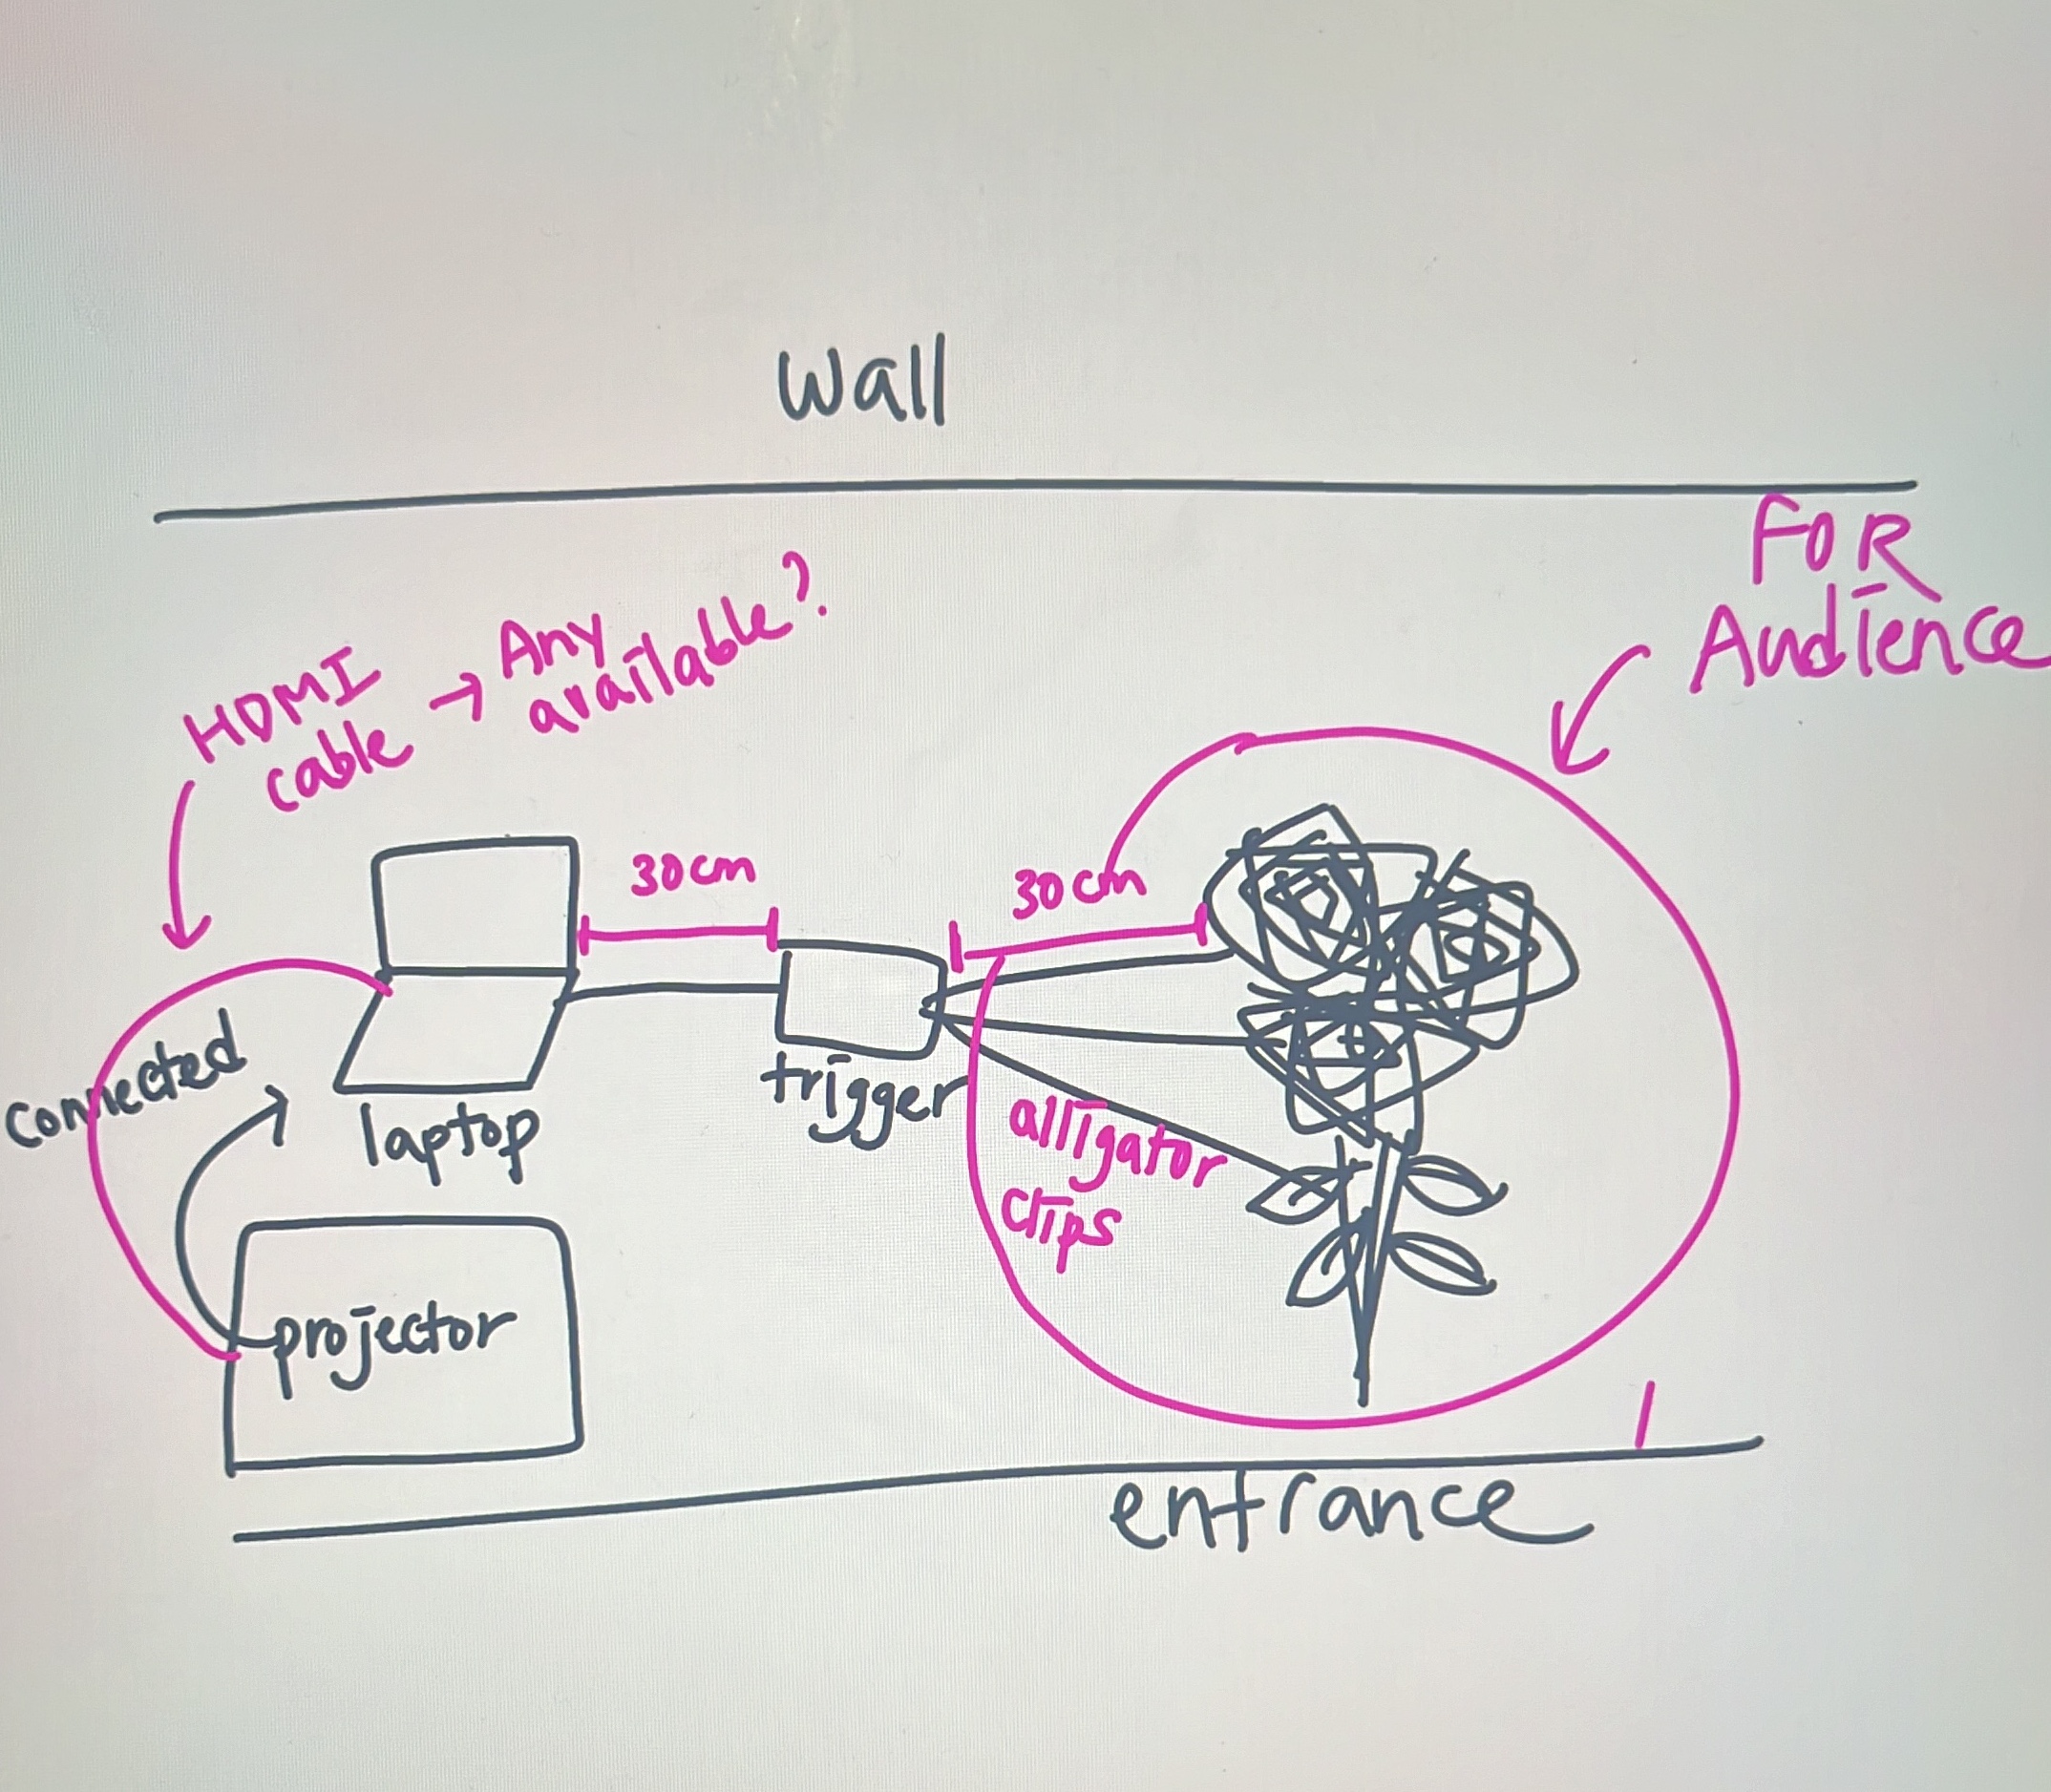 Wall
FOR
Audience
HDMI
cable → Any
available?
30cm
30cm
connected
laptop
trigger
alligator
clips
projector
entrance